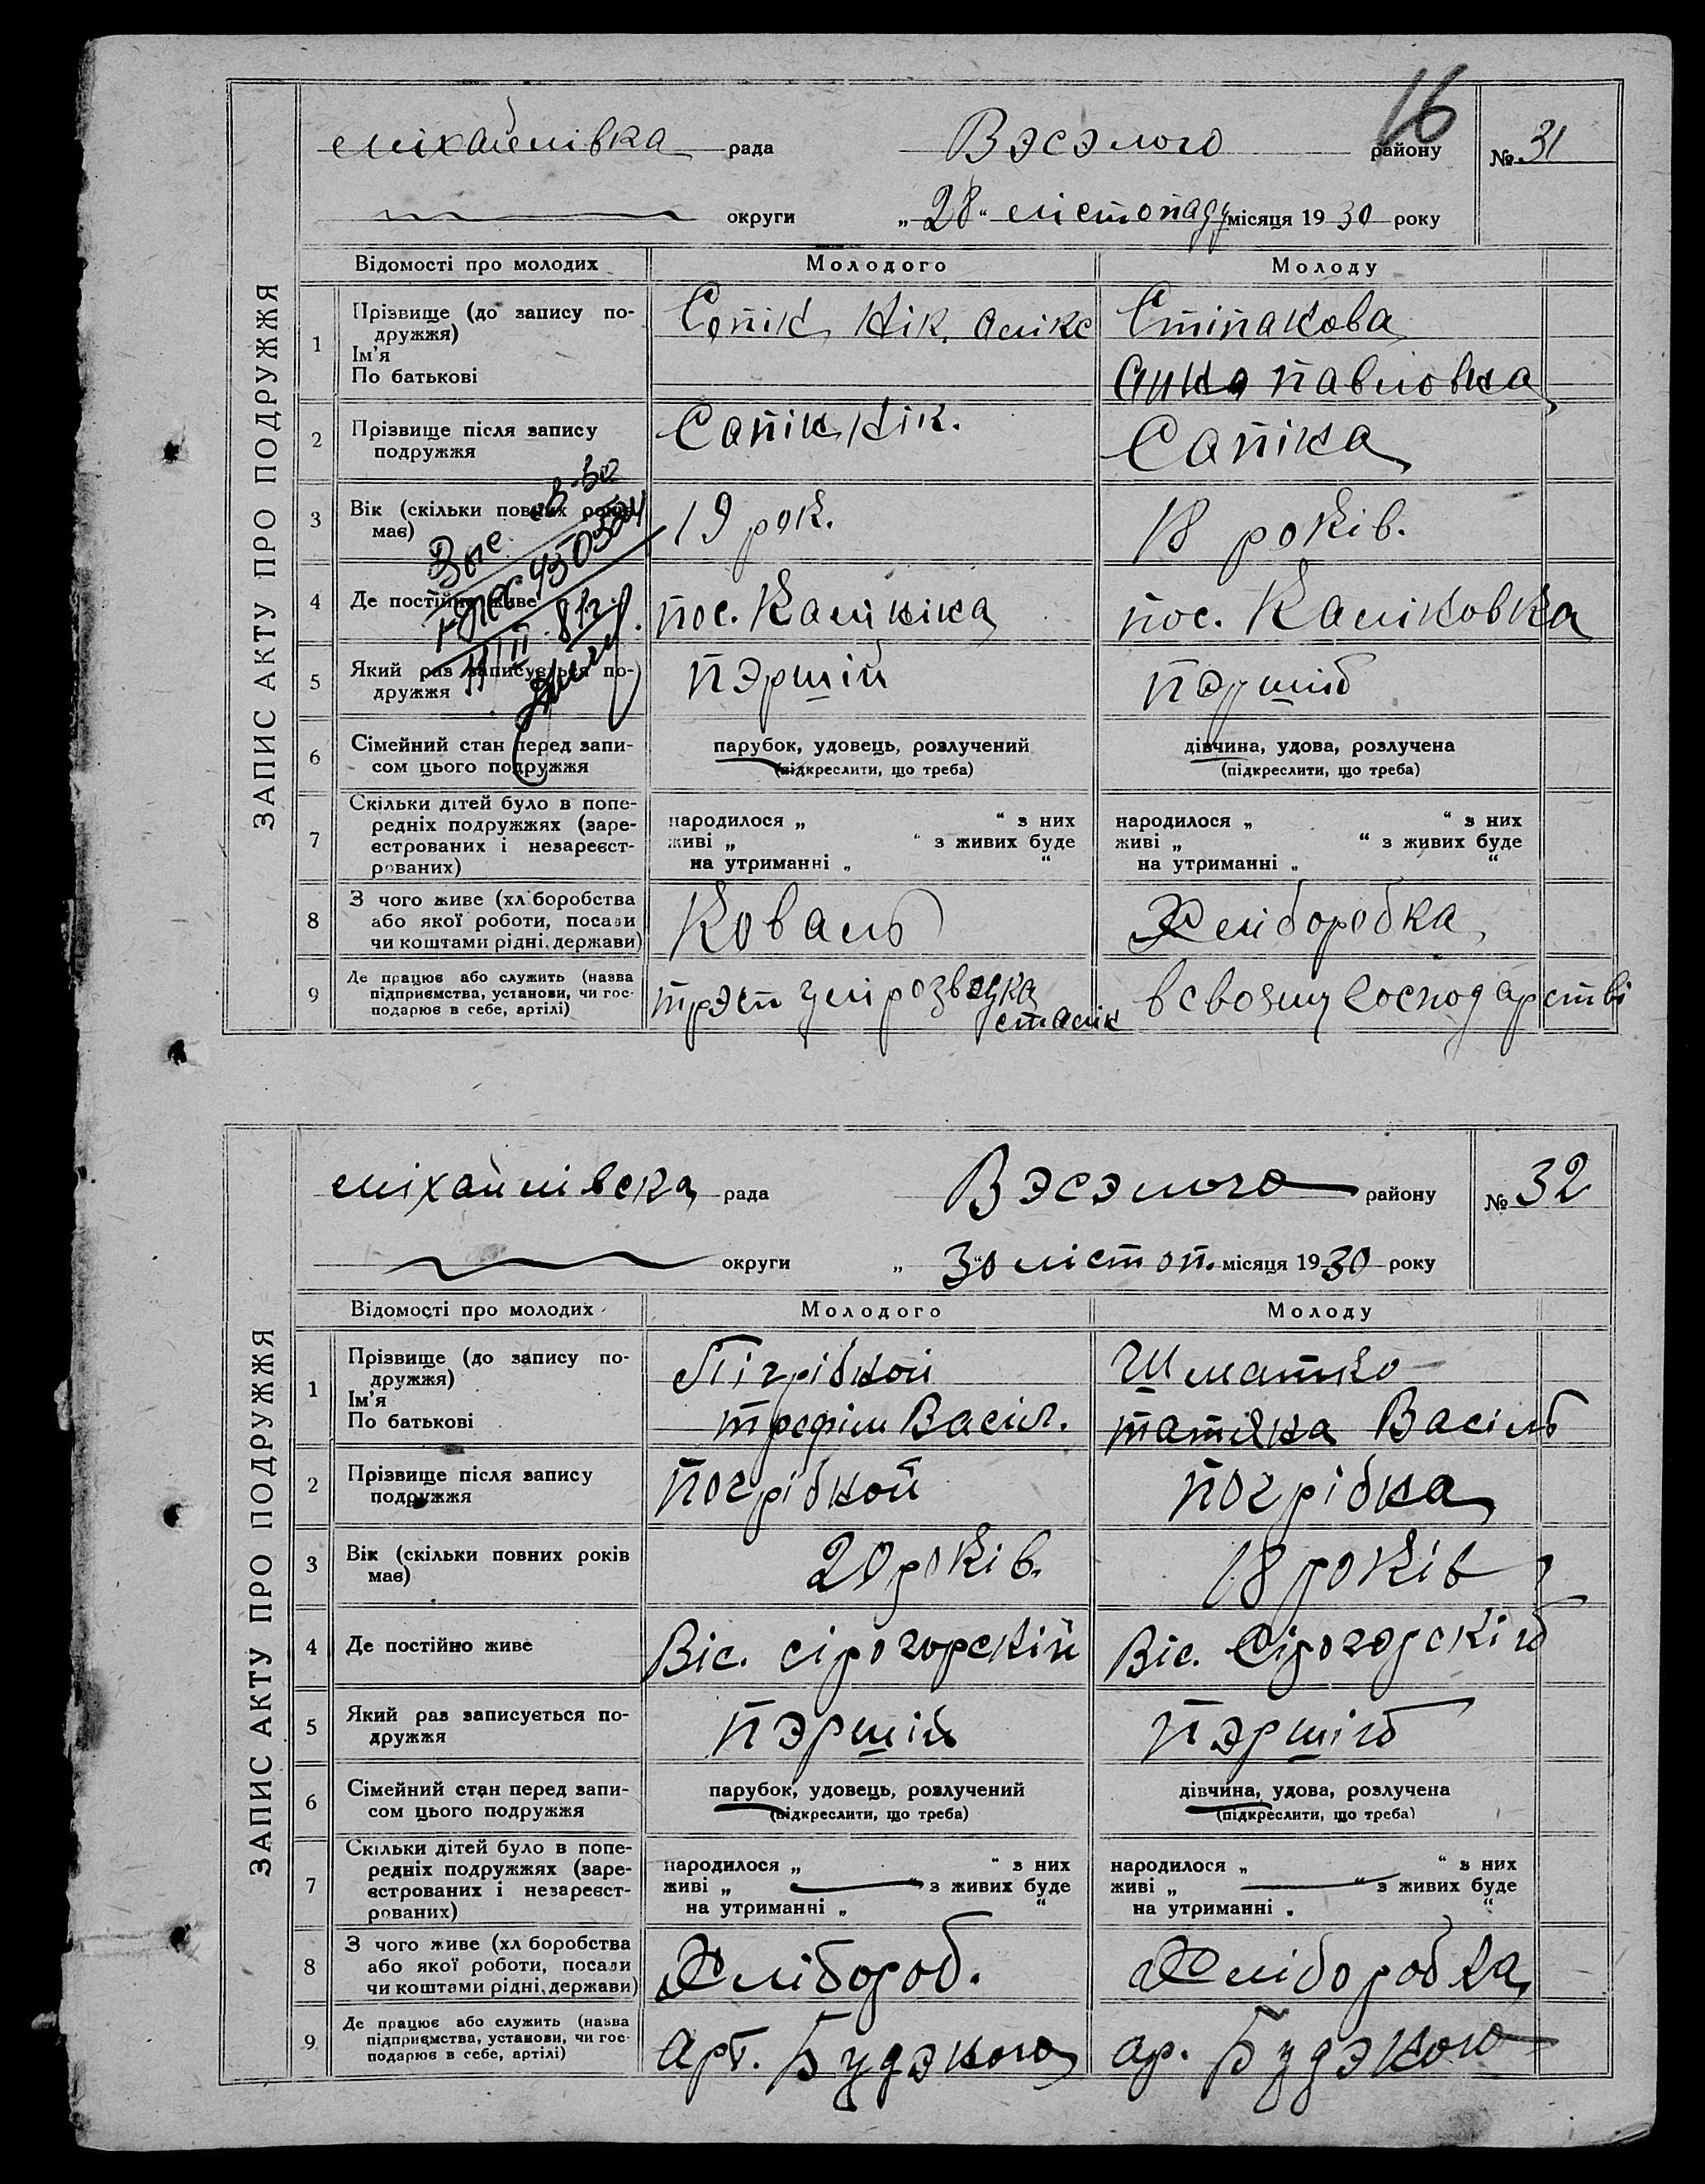 16
міхайлівка рада Вэсэлого району № 31
округи „ 28 “ лістопаду місяця 1930 року
ЗАПИС АКТУ ПРО ПОДРУЖЖЯ
Відомості про молодих Молодого Молоду
1 Прізвище (до запису подружжя) Ім'я По батькові
Сопік Нік. Алікс
Стіпакова
Анна павловна
2 Прізвище після запису подружжя
Сапік Нік.
Сапіка
3 Вік (скільки повних років має)
19 рок.
18 років.
4 Де постійно живе
пос. Калініка
пос. Каліновка
5 Який раз записується подружжя
пэршій
пэршіб
6 Сімейний стан перед записом цього подружжя
парубок, удовець, розлучений
(підкреслити, що треба)
дівчина, удова, розлучена
(підкреслити, що треба)
7 Скільки дітей було в попередніх подружжях (зареєстрованих і незареєстрованих)
народилося „ “ з них
живі „ “ з живих буде
на утриманні „ “
народилося „ “ з них
живі „ “ з живих буде
на утриманні „ “
8 З чого живе (хл.боробства або якої роботи, посади чи коштами рідні, держави)
Коваль
Хліборобка
9 Де працює або служить (назва підприємства, установи, чи господарює в себе, артілі)
трэст
в своэму господарстві
міхайлівска рада Вэсэлого району № 32
округи „ 30 “ лістоп. місяця 1930 року
ЗАПИС АКТУ ПРО ПОДРУЖЖЯ
Відомості про молодих Молодого Молоду
1 Прізвище (до запису подружжя) Ім'я По батькові
Пігрібной
трофім Васіл.
Шматко
татяна Васіль
2 Прізвище після запису подружжя
погрібной
погрібна
3 Вік (скільки повних років має)
20 років.
18 років
4 Де постійно живе
Віс. сірогорскій
Віс. Сірогорскіб
5 Який раз записується подружжя
пэршій
пэршіб
6 Сімейний стан перед записом цього подружжя
парубок, удовець, розлучений
(підкреслити, що треба)
дівчина, удова, розлучена
(підкреслити, що треба)
7 Скільки дітей було в попередніх подружжях (зареєстрованих і незареєстрованих)
народилося „ “ з них
живі „ “ з живих буде
на утриманні „ “
народилося „ “ з них
живі „ “ з живих буде
на утриманні „ “
8 З чого живе (хл боробства або якої роботи, посади чи коштами рідні, держави)
Хлібороб.
Хліборобка
9 Де працює або служить (назва підприємства, установи, чи господарює в себе, артілі)
Арт. Будэного
ар. Будэного